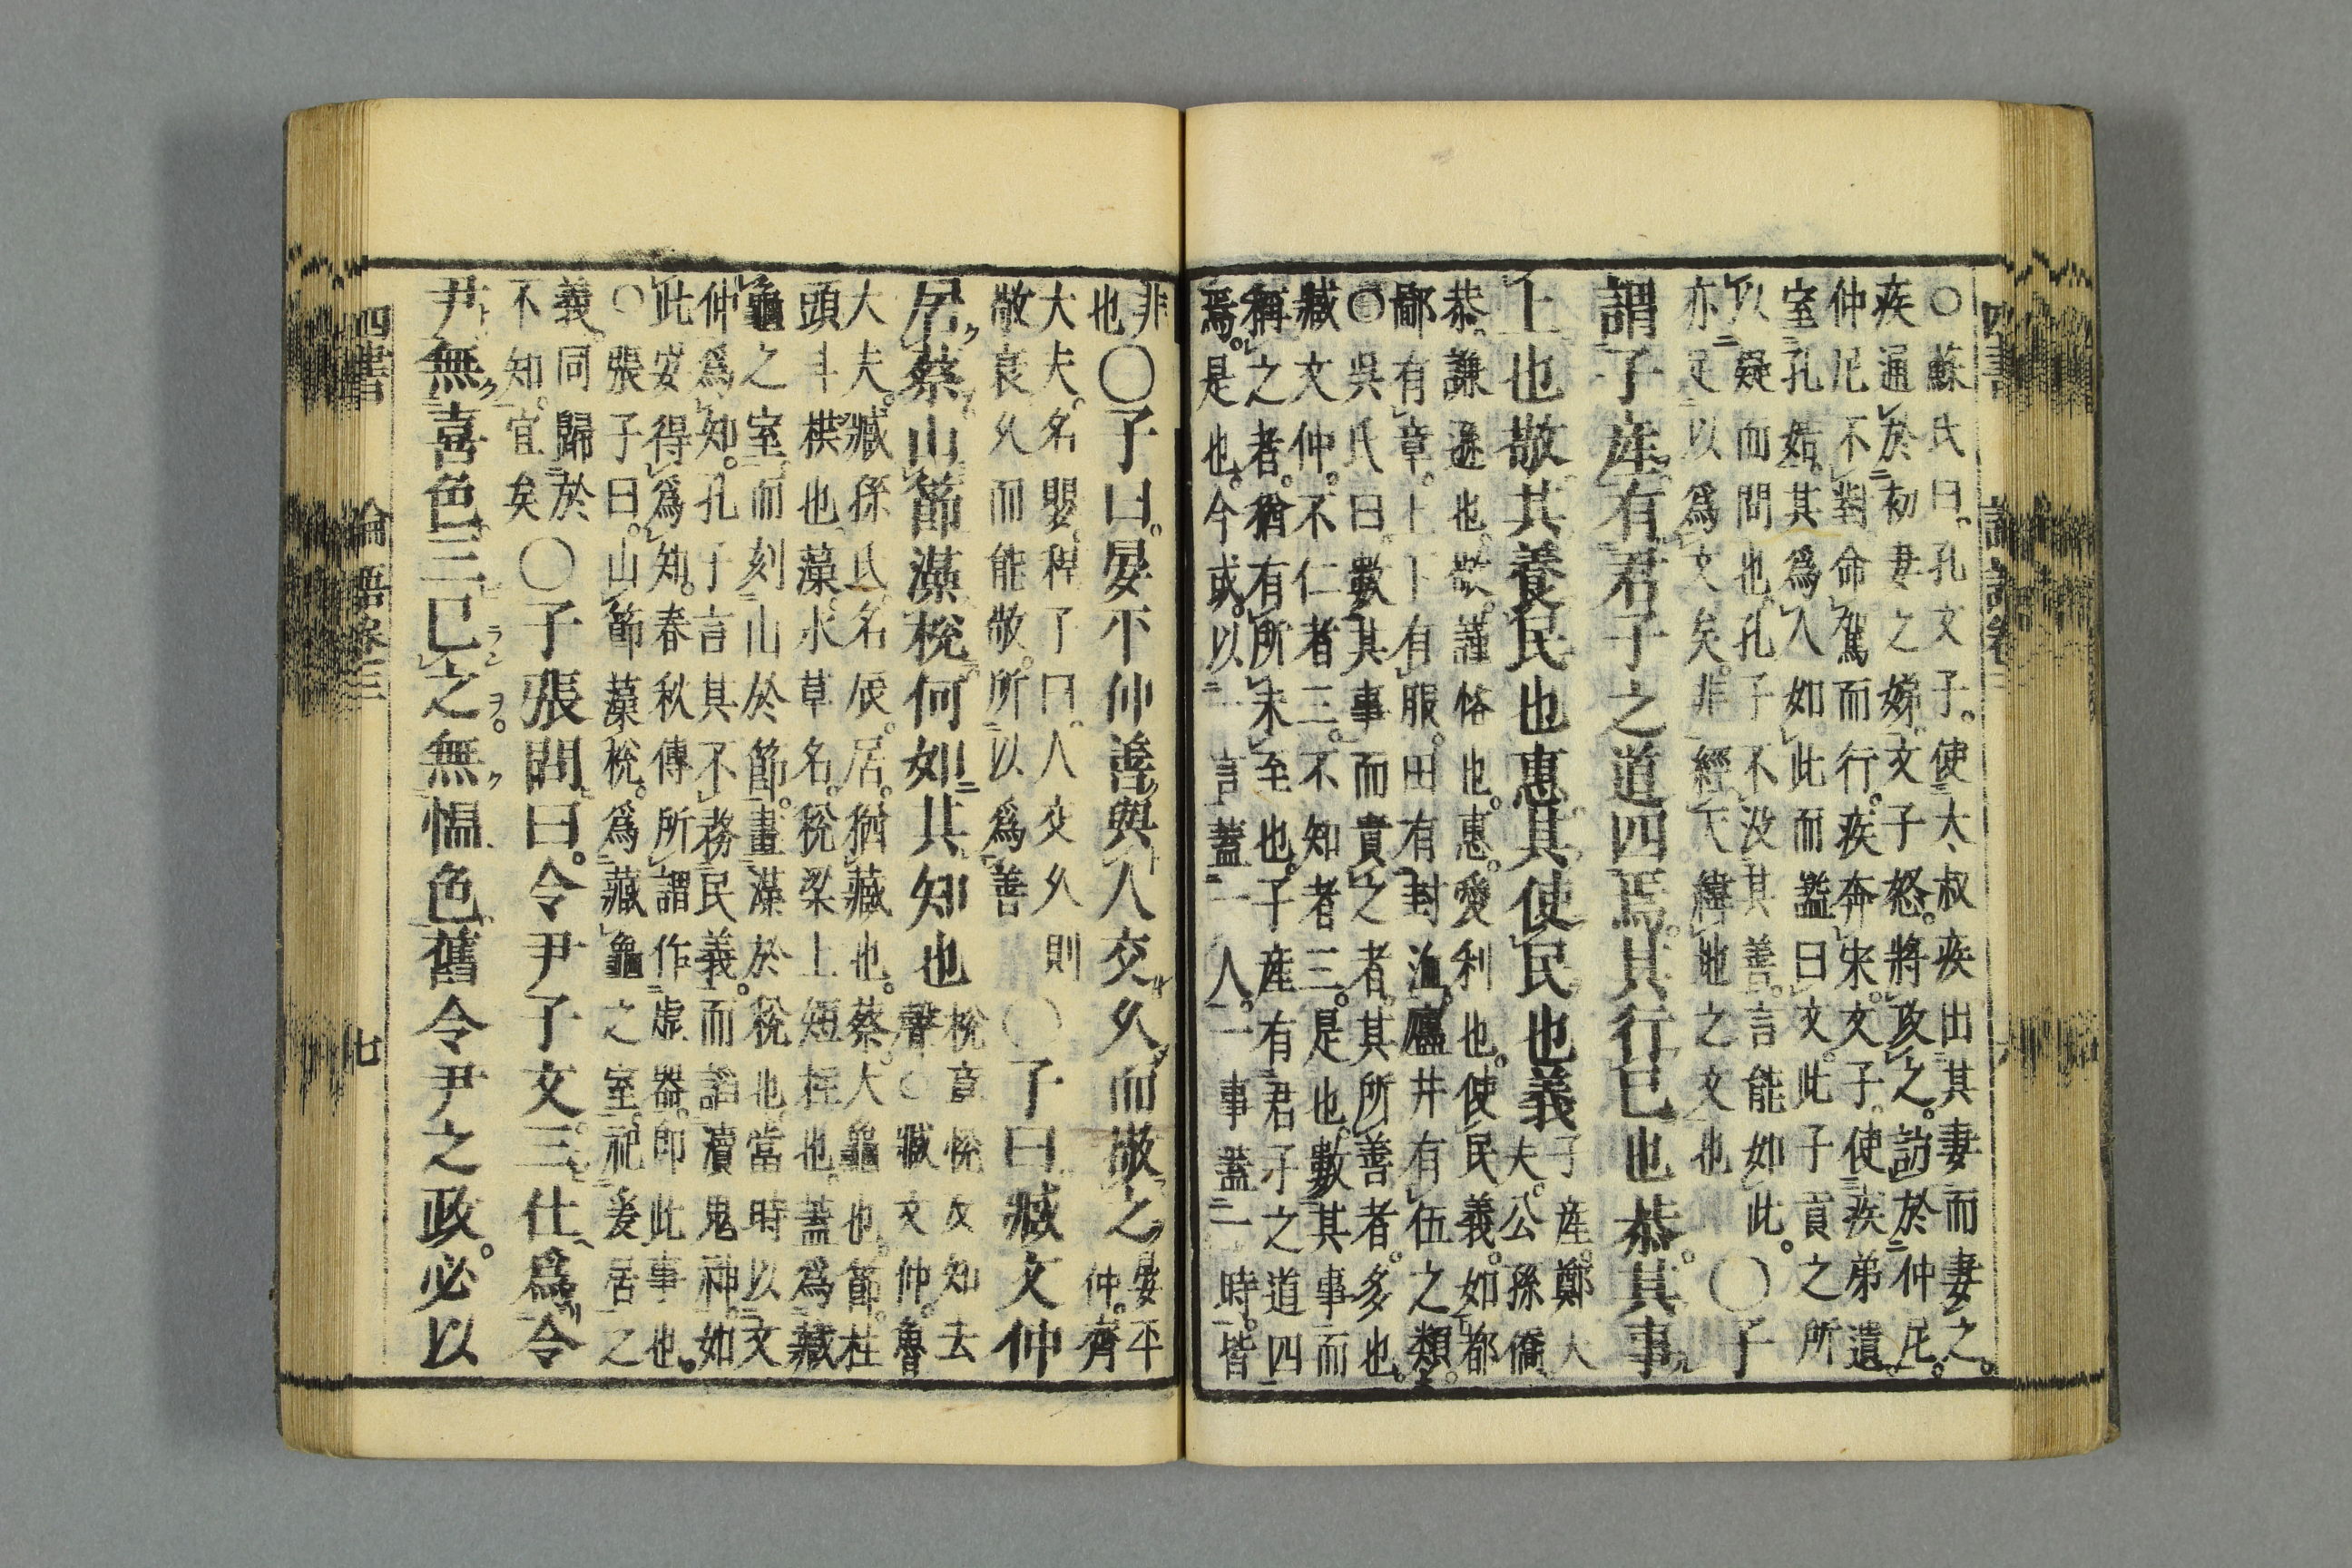 ○蘇氏曰。孔文子。使太叔疾出其妻而妻之。
疾通於初妻之娣。文子怒。將攻之。訪於仲尼。
仲尼不對命駕而行。疾奔宋。文子。使疾弟遺。
室孔姞。其爲人如此而謚曰文。此子貢之所
以疑而問也。孔子不沒其善。言能如此。
亦足以爲文矣。非經天緯地之文也
○子
謂子產。有君子之道四焉。其行己也恭。其事
上也敬。其養民也惠。其使民也義
子產。鄭大
夫。公孫僑
恭。謙遜也。敬。謹恪也。惠。愛利也。使民義。如都
鄙有章。上下有服。田有封洫。廬井有伍之類。
○吳氏曰。數其事而責之者。其所善者。多也。
臧文仲。不仁者三。不知者三。是也。數其事而
稱之者。猶有所未至也。子產有君子之道四
焉。是也。今或。以一言蓋一人。一事蓋一時。皆
非
也
○子曰。晏平仲善與人交久而敬之
晏平
仲。齊
大夫。名嬰。程子曰。人交久則
敬衰久而能敬。所以爲善
○子曰臧文仲
居蔡山節藻梲何如其知也
梲章悅反知去
聲○臧文仲。魯
大夫。臧孫氏名辰。居。猶藏也。蔡。大龜也。節。柱
頭斗栱也。藻。水草名。梲梁上短柱也。蓋爲藏
龜之室而刻山於節。畫藻於梲也。當時以文
仲爲知。孔子言其不務民義。而諂瀆鬼神。如
此安得爲知。春秋傳所謂作虛器。卽此事也。
○張子曰。山節藻梲。爲藏龜之室。祀爰居之
義。同歸於
不知。宜矣
○子張問曰。令尹子文三仕爲令
尹無喜色三已之無慍色舊令尹之政。必以
四書 論語卷三 七